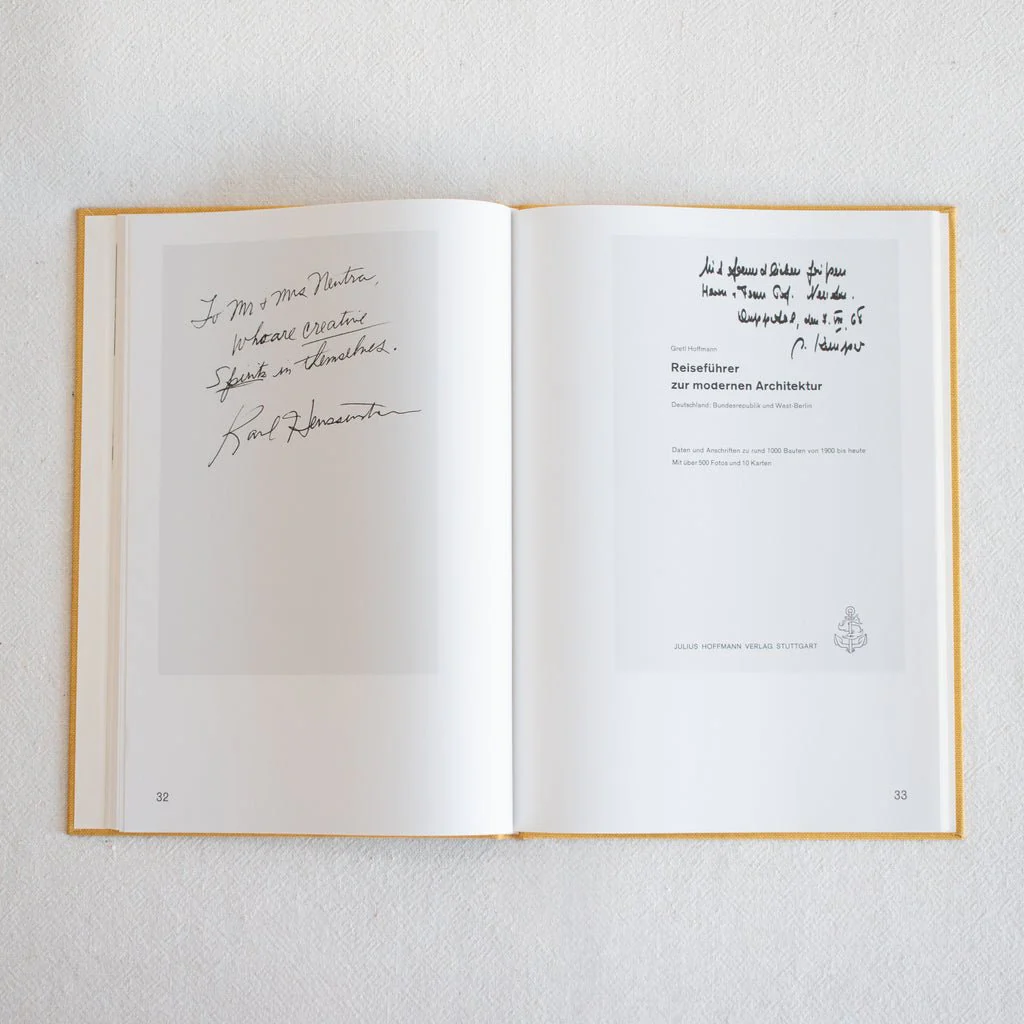 To Mr + Mrs Neutra,
who are creative
spirits in themselves.
Karl
32
Mit freundlichen Grüßen
Herrn + Frau Prof. Neutra.
Wuppertal, den 7. VII. 68
Gretl Hoffmann
Reiseführer
zur modernen Architektur
Deutschland: Bundesrepublik und West-Berlin
Daten und Anschriften zu rund 1000 Bauten von 1900 bis heute
Mit über 500 Fotos und 10 Karten
JULIUS HOFFMANN VERLAG STUTTGART
33